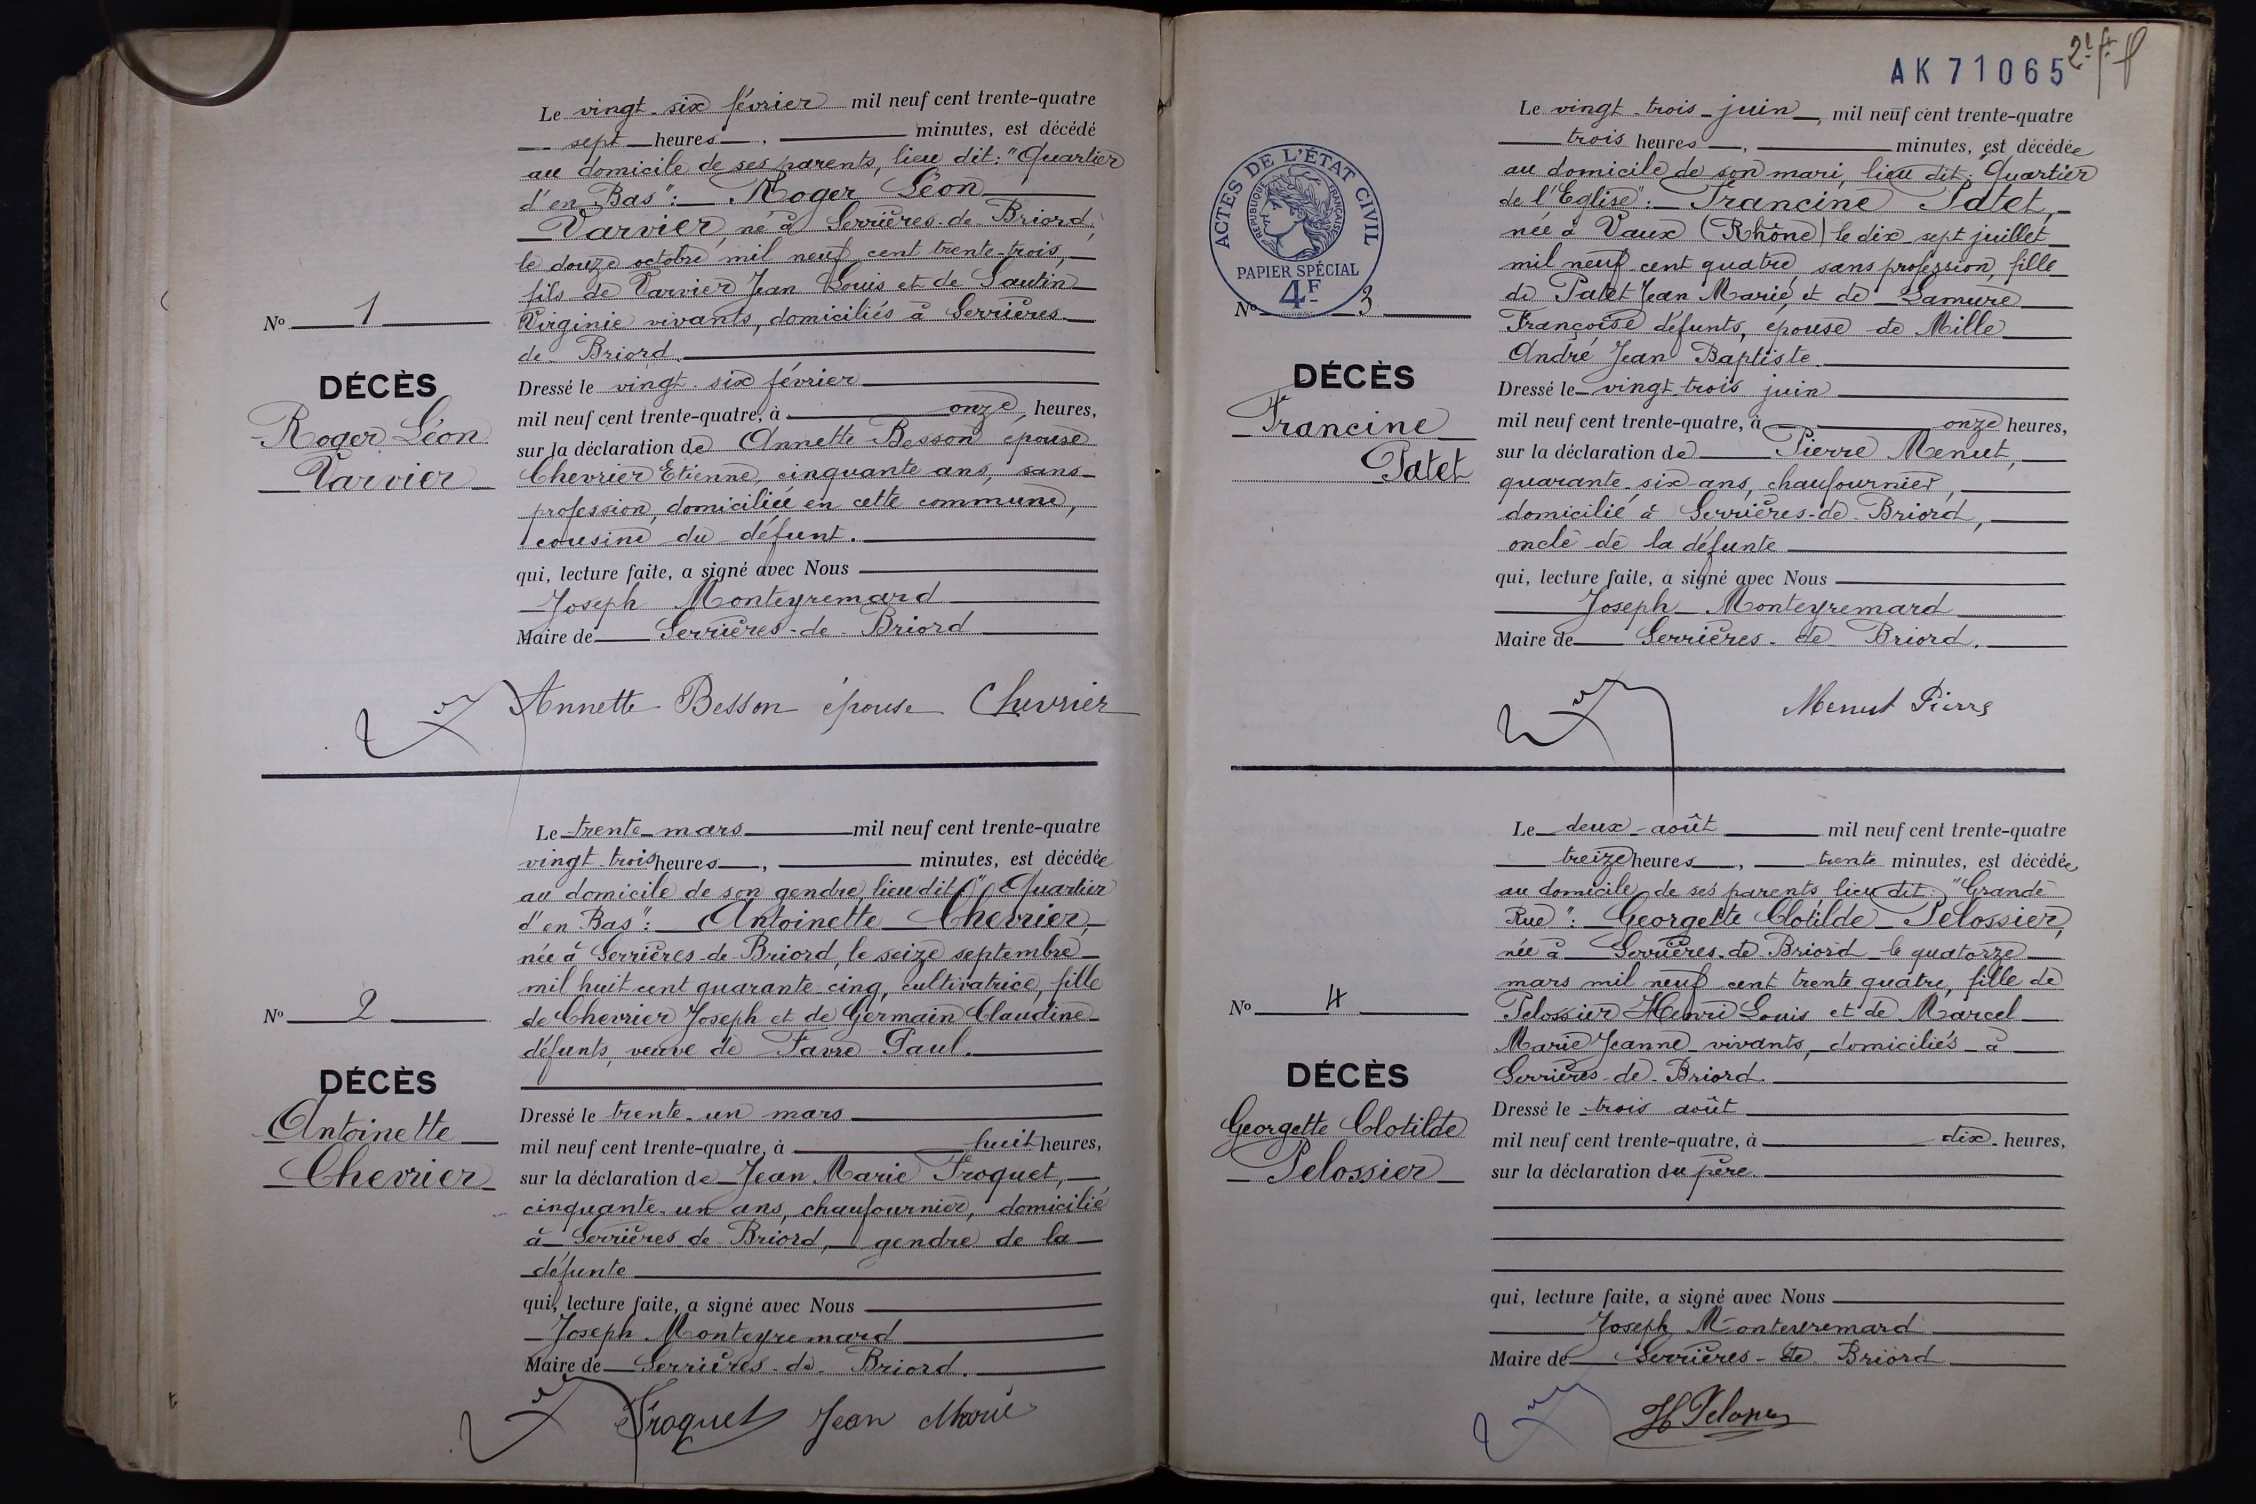 Le vingt-six février mil neuf cent trente-quatre
sept heures, minutes, est décédé
au domicile de ses parents, lieu dit: "Quartier
d'en Bas": Roger Léon
Varvier, né à Serrières-de-Briord,
le douze octobre mil neuf cent trente-trois,
fils de Varvier Jean Louis et de Sautin
Virginie vivants, domiciliés à Serrières
de Briord.
No 1
DÉCÈS
Roger Léon
Varvier
Dressé le vingt-six février
mil neuf cent trente-quatre, à onze heures,
sur la déclaration de Annette Besson épouse
Chevrier Etienne, cinquante ans, sans
profession, domiciliée en cette commune,
cousine du défunt.
qui, lecture faite, a signé avec Nous
Joseph Monteyremard
Maire de Serrières-de-Briord
Annette Besson épouse Chevrier
Le trente mars mil neuf cent trente-quatre
vingt-trois heures, minutes, est décédée
au domicile de son gendre, lieu dit "Quartier
d'en Bas": Antoinette Chevrier,
née à Serrières-de-Briord, le seize septembre
mil huit cent quarante-cinq, cultivatrice, fille
de Chevrier Joseph et de Germain Claudine
défunts, veuve de Favre Paul.
No 2
DÉCÈS
Antoinette
Chevrier
Dressé le trente-un mars
mil neuf cent trente-quatre, à huit heures,
sur la déclaration de Jean Marie Froquet,
cinquante-un ans, chaufournier, domicilié
à Serrières-de-Briord, gendre de la
défunte
qui, lecture faite, a signé avec Nous
Joseph Monteyremard
Maire de Serrières-de-Briord.
Froquet Jean Marie
AK 71065
ACTES DE L'ÉTAT CIVIL
RÉPUBLIQUE FRANÇAISE
PAPIER SPÉCIAL
4F
Le vingt-trois juin, mil neuf cent trente-quatre
trois heures, minutes, est décédée
au domicile de son mari, lieu dit: "Quartier
de l'Eglise": Francine Patet,
née à Vaux (Rhône) le dix sept juillet
mil neuf cent quatre, sans profession, fille
de Patet Jean Marie, et de Lamure
Françoise défunts, épouse de Mille
André Jean Baptiste.
No 3
DÉCÈS
Francine
Patet
Dressé le vingt-trois juin
mil neuf cent trente-quatre, à onze heures,
sur la déclaration de Pierre Menut,
quarante-six ans, chaufournier,
domicilié à Serrières-de-Briord,
oncle de la défunte
qui, lecture faite, a signé avec Nous
Joseph Monteyremard
Maire de Serrières-de Briord.
Menut Pierre
Le deux août mil neuf cent trente-quatre
treize heures, trente minutes, est décédée
au domicile de ses parents, lieu dit: "Grande
Rue": Georgette Clotilde Pelossier,
née à Serrières-de-Briord le quatorze
mars mil neuf cent trente quatre, fille de
Pelossier Henri Louis et de Marcel
Marie Jeanne vivants, domiciliés à
Serrières-de-Briord.
No 4
DÉCÈS
Georgette Clotilde
Pelossier
Dressé le trois août
mil neuf cent trente-quatre, à dix heures,
sur la déclaration du père.
qui, lecture faite, a signé avec Nous
Joseph Monteyremard
Maire de Serrières-de Briord